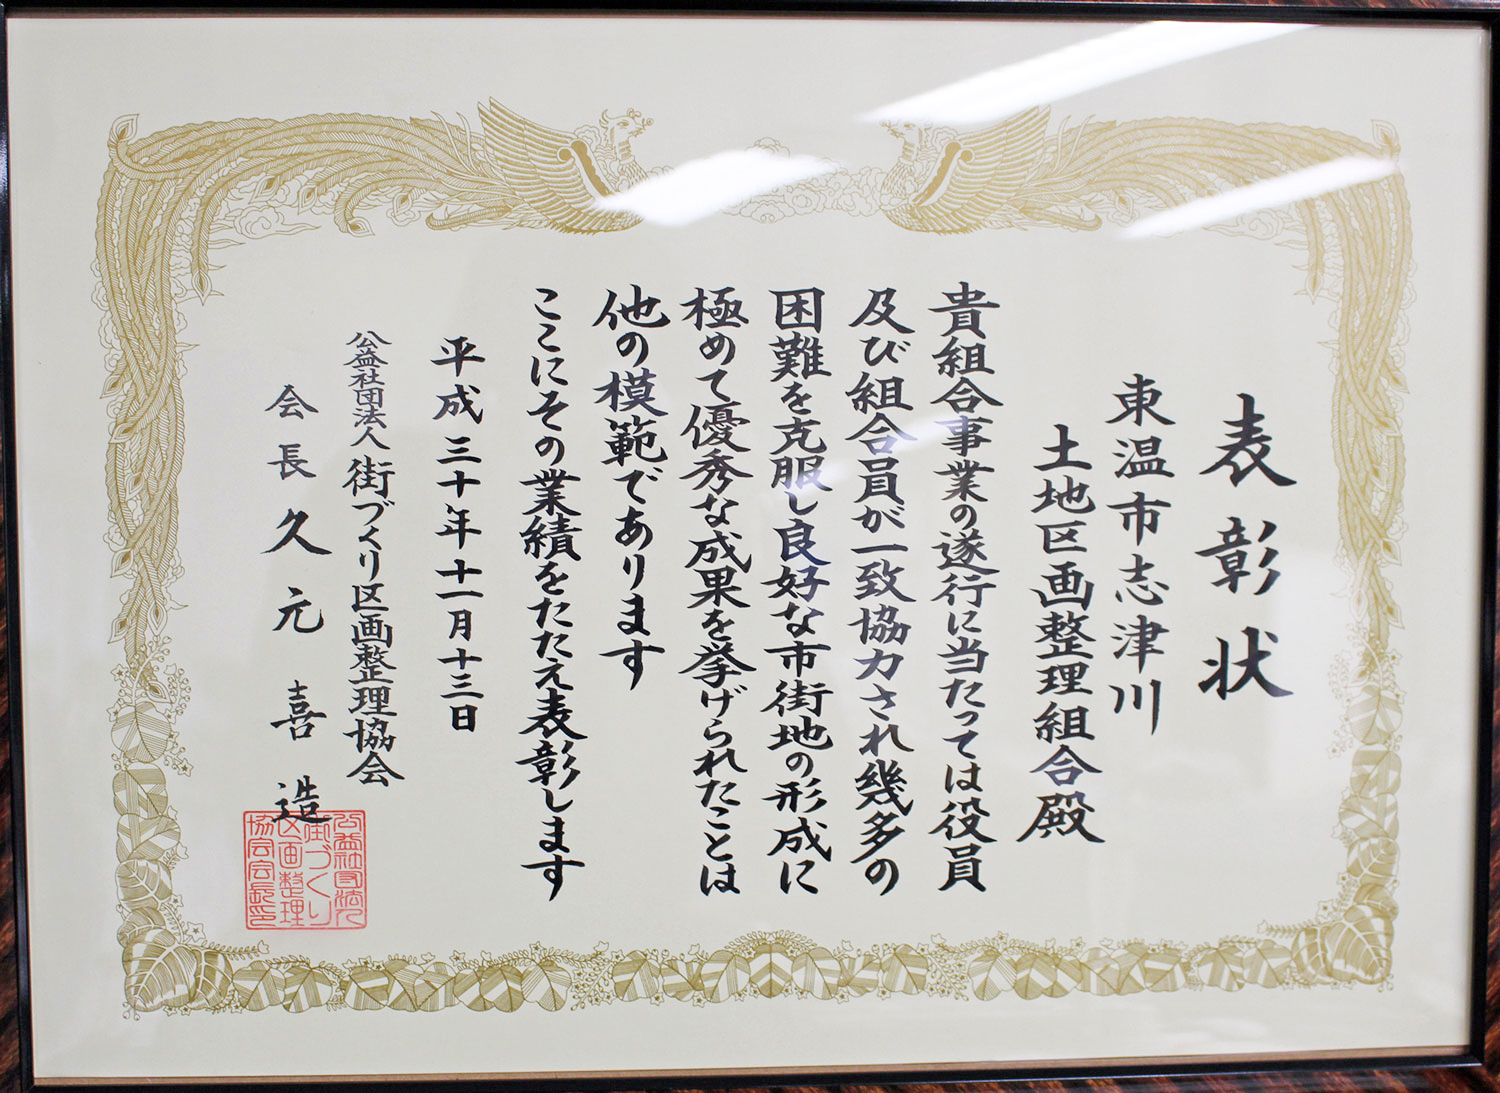 表彰状
東温市志津川
土地区画整理組合殿
貴組合事業の遂行に当たっては役員
及び組合員が一致協力され幾多の
困難を克服し良好な市街地の形成に
極めて優秀な成果を挙げられたことは
他の模範であります
ここにその業績をたたえ表彰します
平成三十年十一月十三日
公益社団法人街づくり区画整理協会
会長久元喜造
公益社団法人
街づくり
区画整理
協会会長印